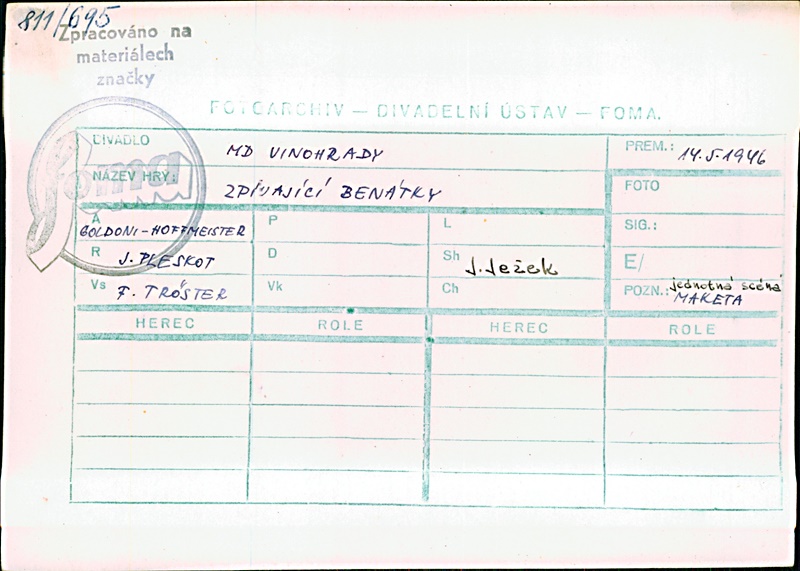 811/695
Zpracováno na
materiálech
značky
Foma
FOTOARCHIV — DIVADELNÍ ÚSTAV — FOMA.
DIVADLO MD VINOHRADY
PREM.: 14.5.1946
NÁZEV HRY: ZPÍVAJÍCÍ BENÁTKY
FOTO
A GOLDONI-HOFFMEISTER
P
L
SIG.:
R J. PLESKOT
D
Sh J. Ježek
E/
Vs F. TRÖSTER
Vk
Ch
POZN.: jednotná scéna
MAKETA
HEREC ROLE HEREC ROLE